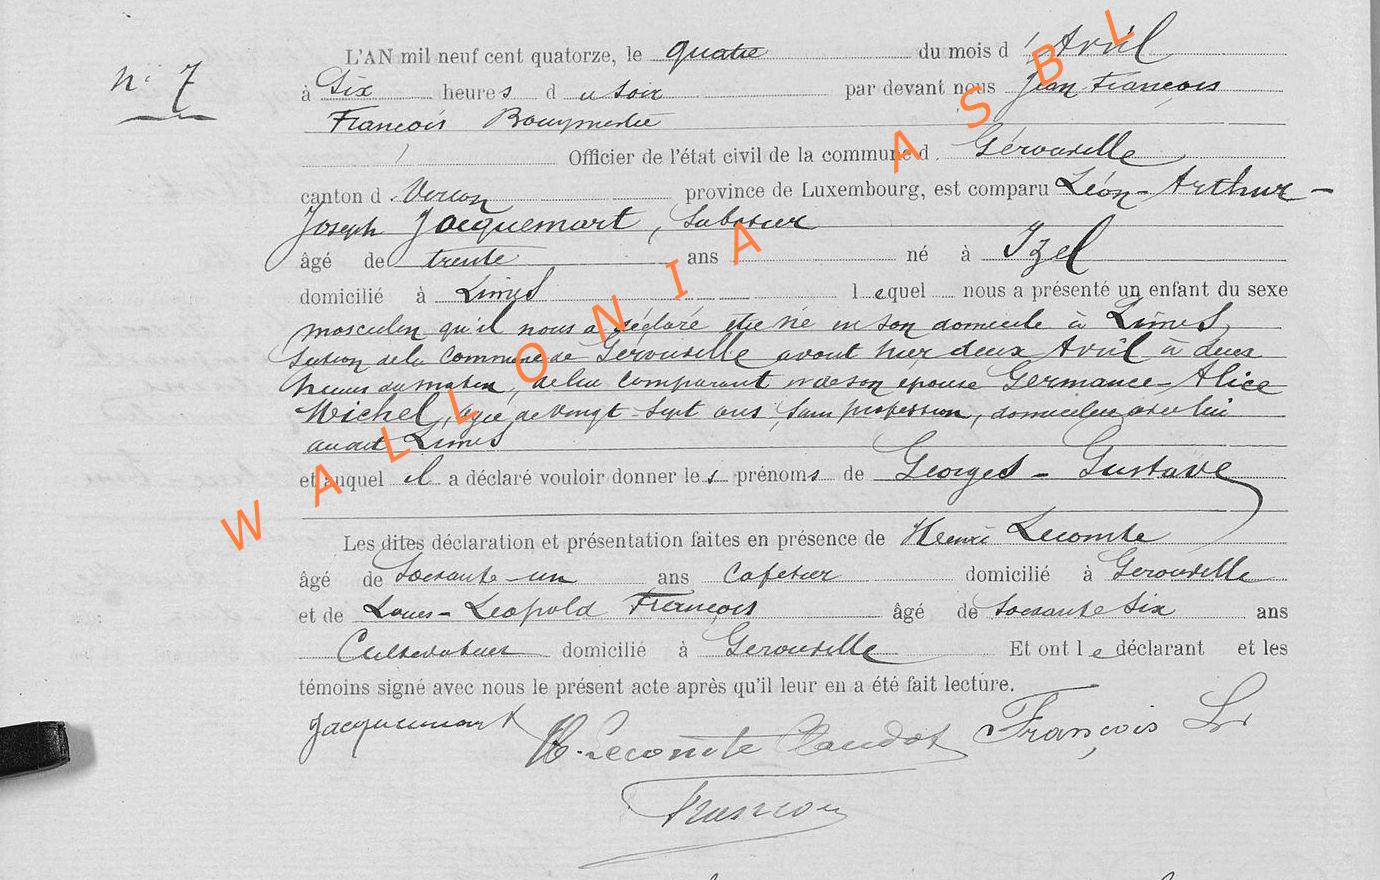 N° 7
L'AN mil neuf cent quatorze, le quatre du mois d'Avril
à Six heures du soir par devant nous Jean François
François Bourgmestre
Officier de l'état civil de la commune d. Gérouville
canton d. Virton province de Luxembourg, est comparu Léon-Arthur-
Joseph Jacquemart, Sabotier
âgé de trente ans né à Izel
domicilié à Limes lequel nous a présenté un enfant du sexe
masculin qu'il nous a déclaré être né en son domicile à Limes
section de la commune de Gérouville avant hier deux Avril à deux
heures du matin, de lui comparant et de son épouse Germance-Alice
Michel, âgée de vingt-sept ans, sans profession, domiciliée avec lui
audit Limes
et auquel il a déclaré vouloir donner les prénoms de Georges-Gustave
Les dites déclaration et présentation faites en présence de Henri Lecomte
âgé de Soixante-un ans cafetier domicilié à Gerouville
et de Louis-Léopold François âgé de Soixante six ans
Cultivateur domicilié à Gerouville Et ont le déclarant et les
témoins signé avec nous le présent acte après qu'il leur en a été fait lecture.
Jacquemart H. Lecomte François L
François
WALLONIA ASBL